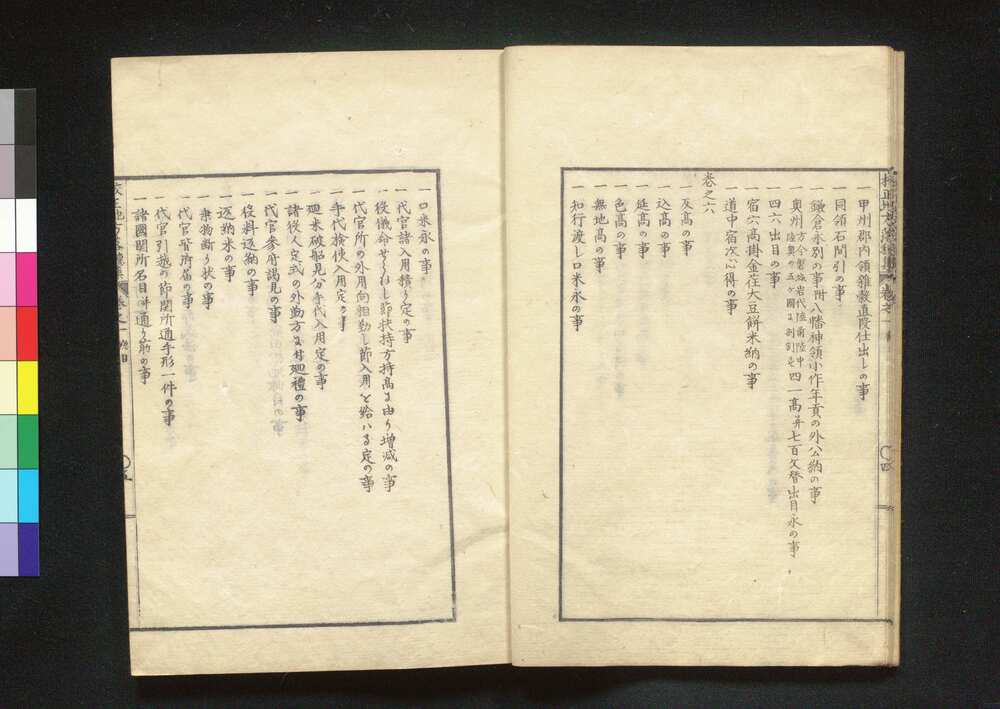 一甲州郡内領雑穀直段仕出しの事
一同領石間引の事
一鎌倉永別の事附八幡神領小作年貢の外公納の事
奥州方今磐城岩代陸前陸中陸奥の五ケ國に割引是四一高并七百文替出目永の事
一四六出目の事
一宿六高掛金荏大豆餅米納の事
一道中宿次心得の事
巻之六
一反高の事
一込高の事
一延高の事
一色高の事
一無地高の事
一知行渡し口米永の事
一口米永の事
一代官諸入用積り定の事
一役儀命せられし節扶持方持高に由り増減の事
一代官所の外用向相勤し節入用と給ハる定の事
一手代検使入用定の事
一廻米破船見分手代入用定の事
一諸役人定式の外勤方に付廻禮の事
一代官参府謁見の事
一役料返納の事
一返納米の事
一乗物断り状の事
一代官居所届の事
一代官引越の節関所通手形一件の事
一諸國関所名目并通り筋の事